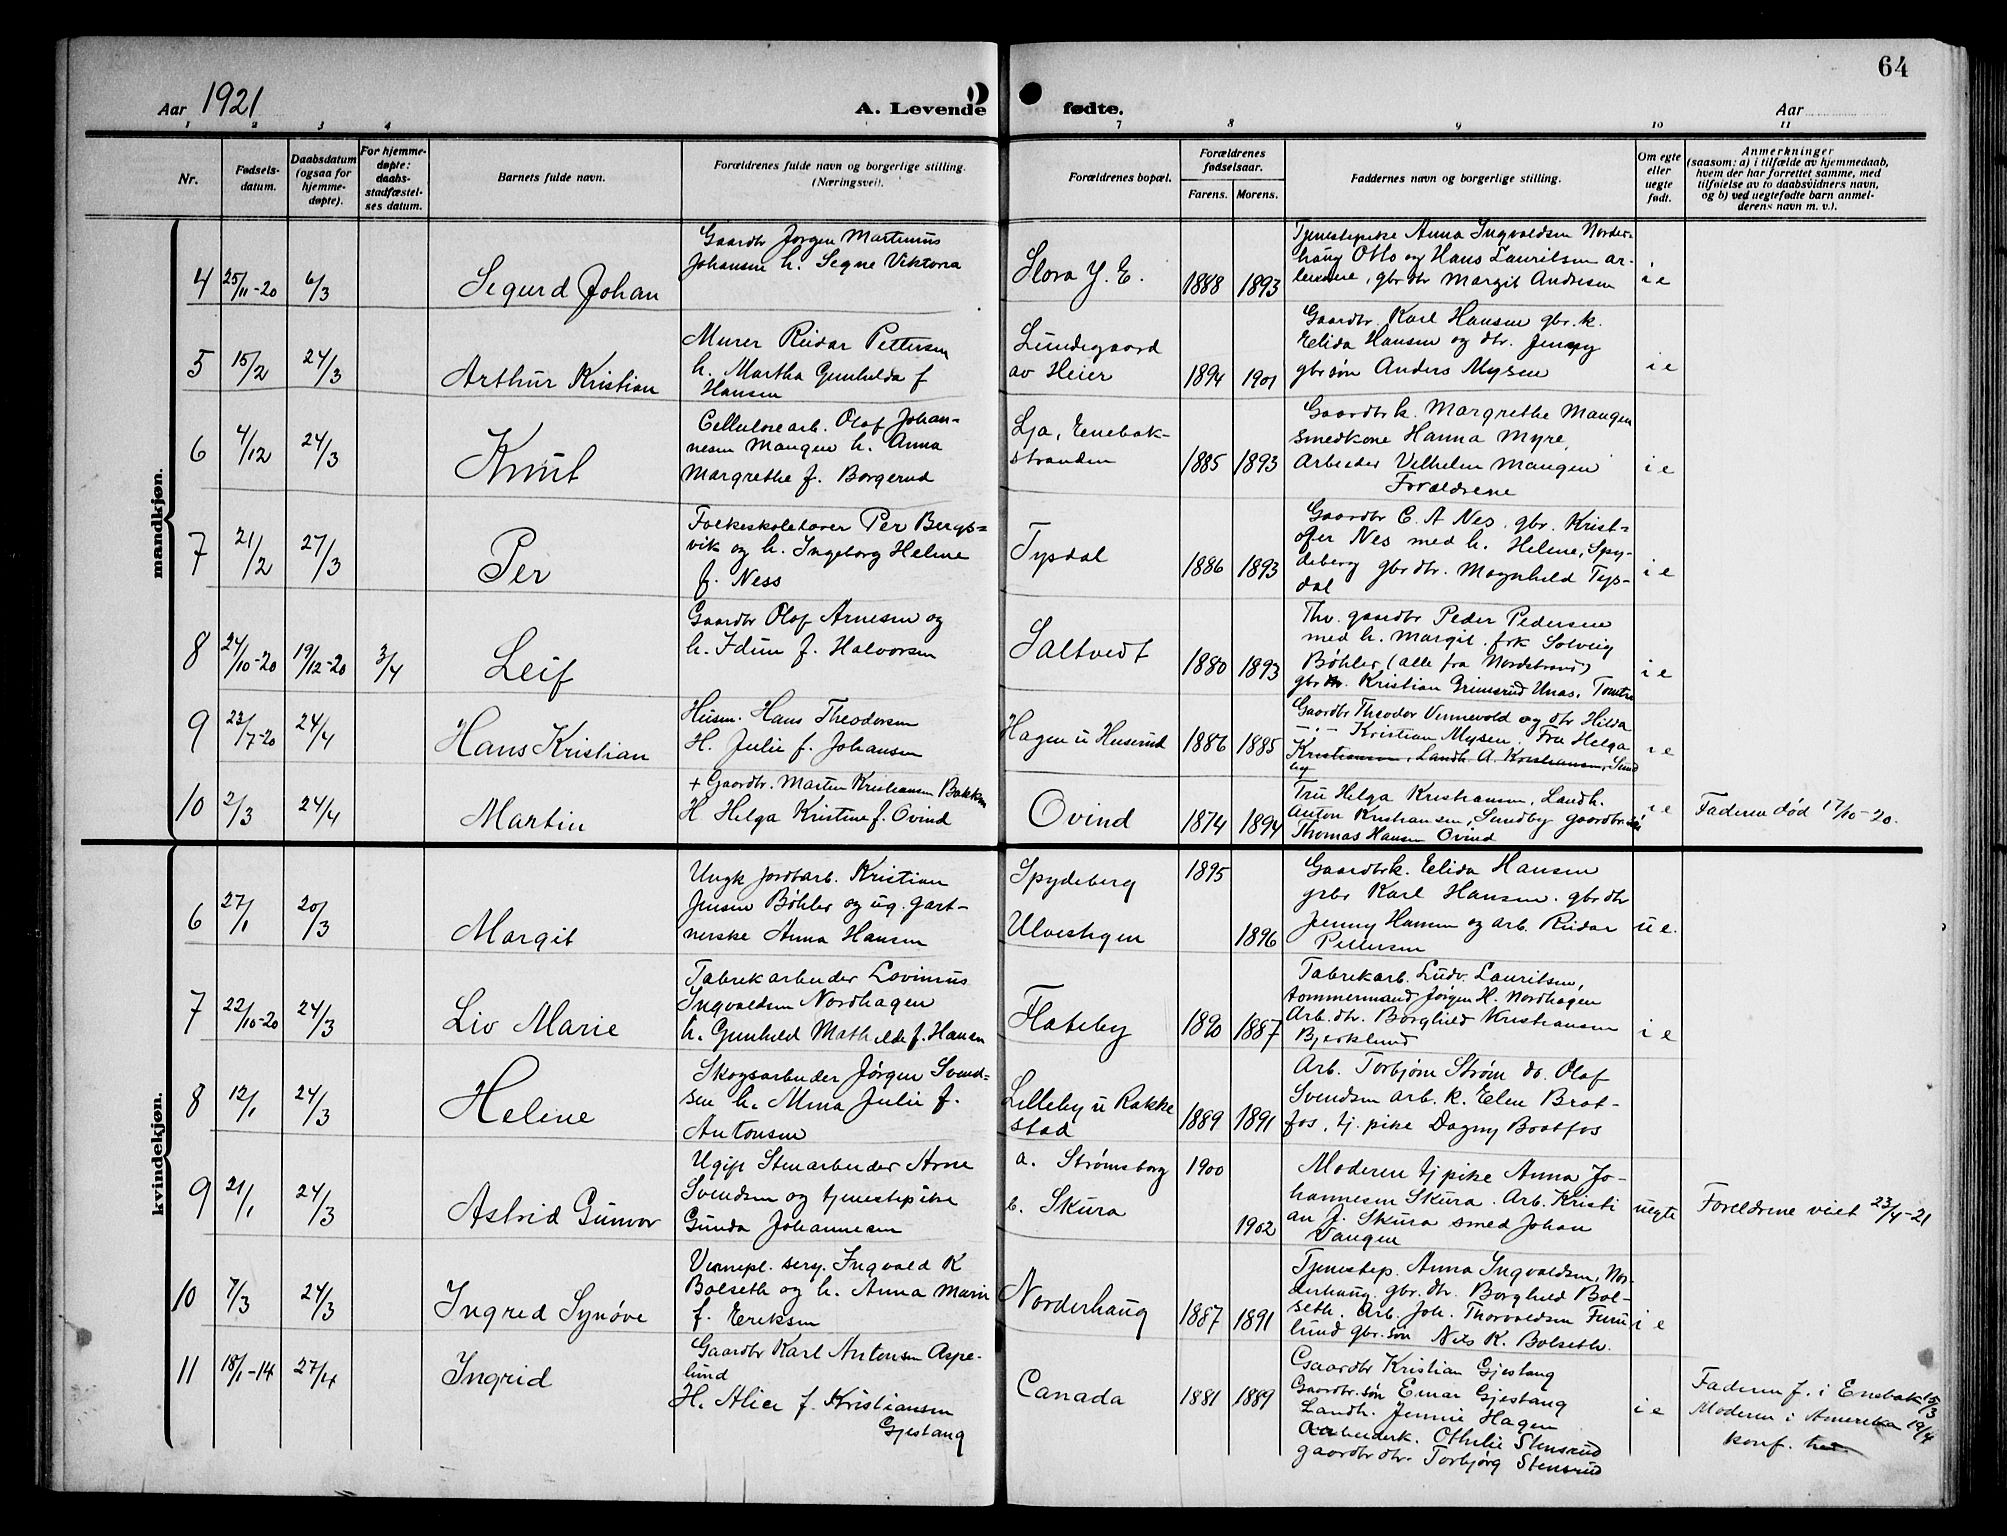 64
Aar 1921
A. Levende fødte.
Aar
1 2 3 4 7 8 9 10 11
Nr.
Fødsels-
datum.
Daabsdatum
(ogsaa for
hjemme-
døpte).
For hjemme-
døpte:
daabs-
stadfæstel-
ses datum.
Barnets fulde navn.
Forældrenes fulde navn og borgerlige stilling.
(Næringsvei).
Forældrenes bopæl.
Forældrenes
fødselsaar.
Farens. Morens.
Faddernes navn og borgerlige stilling.
Om egte
eller
uegte
født.
Anmerkninger
(saasom: a) i tilfælde av hjemmedaab,
hvem der har forrettet samme, med
tilføielse av to daabsvidners navn,
og b) ved uegtefødte barn anmel-
derens navn m. v.).
mandkjøn.
4 25/11-20 6/3 Sigurd Johan
Gaardbr Jørgen Martinius
Johansen h. Signe Viktoria
Slora Y. E. 1888 1893
Tjenestepike Anna Ingvaldsen Norder-
haug Otto og Hans Lauritsen ar-
beidere, gbr dtr Margit Andresen
i e
5 15/2 24/3 Arthur Kristian
Murer Reidar Pettersen
h. Martha Gunhilda f
Hansen
Lundegaard
av Heier 1894 1901
Gaardbr Karl Hansen gbr. k.
Elida Hansen og dtr. Jenny
gbr søn Anders Mysen
i e
6 4/12 24/3 Knut
Cellulosearb. Olaf Johan-
nesen Mangen h. Anna
Margrethe f. Borgerud
Lja, Enebak-
stranden 1885 1893
Gaardbr k. Margrethe Mangen
smedkone Hanna Myre,
Arbeider Vilhelm Mangen
Forældrene
i e
7 21/2 27/3 Per
Folkeskolelærer Per Bergs-
vik og h. Ingeborg Helene
f. Ness
Tysdal 1886 1893
Gaardbr C. A Nes. gbr. Krist-
ofer Nes med h. Helene, Spy-
deberg gbr dtr. Magnhild Tys-
dal
i e
8 24/10-20 19/12-20 3/4 Leif
Gaardbr Olaf Arnesen og
h. Idun f. Halvorsen
Saltvedt 1880 1893
Thv. gaardbr Peder Pedersen
med h. Margit. frk Solveig
Bøhler (alle fra Nordstrand)
gbr. Kristian Grimsrud Unas, Tomter
i e
9 23/7-20 24/4 Hans Kristian
Husm. Hans Theodorsen
H. Julie f. Johansen
Hagen u Huserud 1886 1885
Gaardbr Theodor Vennevold og dtr Hilda
- . - Kristian Mysen. Fru Helga
Kristiansen, Landh. A. Kristiansen, Sund
by
i e
10 2/3 24/4 Martin
+ Gaardbr. Martin Kristiansen Bakken
H Helga Kristine f. Ovind
Ovind 1874 1894
Fru Helga Kristiansen, Landh.
Anton Kristiansen, Sundby gaardbr
Thomas Hansen Ovind
i e
Faderen død 17/10-20.
kvindekjøn.
6 27/1 20/3 Margit
Ungk jordarb. Kristian
Jensen Bøhler og ug. gart-
nerske Anna Hansen
Spydeberg 1895
Ulvestigen 1896
Gaardbrk. Elida Hansen
gbr Karl Hansen. gbr dtr
Jenny Hansen og arb. Reidar
Pettersen
u e.
7 22/10-20 24/3 Liv Marie
Fabrekarbeider Lovinius
Ingvaldsen Nordhagen
h. Gunhild Mathilde f. Hansen
Flateby 1890 1887
Fabrekarb. Ludv. Lauritsen,
tømmermand Jørgen H. Nordhagen
Arb. dtr. Borghild Kristiansen
Bjerklund
i e
8 12/1 24/3 Helene
Skogsarbeider Jørgen Svend-
sen h. Mina Julie f.
Antonsen
Lilleby u Rakke
stad 1889 1891
Arb. Torbjørn Strøm do. Olaf
Svendsen arb. k. Elen Brat-
fos, tj. pike Dagny Bratfos
9 21/1 24/3 Astrid Gunvor
Ugift Stenarbeider Arne
Svendsen og tjenestepike
Gunda Johannesen
a. Strømsborg 1900
b. Skura 1902
Moderen tj pike Anna Jo-
hannesen Skura. Arb. Kristi
an J. Skura smed Johan
Vangen
uegte
Foreldrene viet 23/4-21
10 7/3 24/3 Ingrid Synøve
Vernepl. serg. Ingvald K
Bolseth og h. Anna Marie
f. Eriksen
Norderhaug 1887 1891
Tjenestep. Anna Ingvaldsen, Nor-
derhaug, gbr. dtr. Borghild Bol-
seth. Arb. Joh. Thorvaldsen Furu
lund gbr. søn Nils K. Bolseth.
i e
11 18/1-14 27/4 Ingrid
Gaardbr Karl Antonsen Aspe-
lund
H. Alice f. Kristiansen
Gjestang
Canada 1881 1889
Gaardbr Kristian Gjestang
Gaardbr.søn Einar Gjestang
Landh. Jennie Hagen
Arbeiderk. Othilie Stensrud
gaardbr dtr. Torbjørg Stensrud
i e
Faderen f. i Enebak 15/3
Moderen i Amerika 19/4
konf.